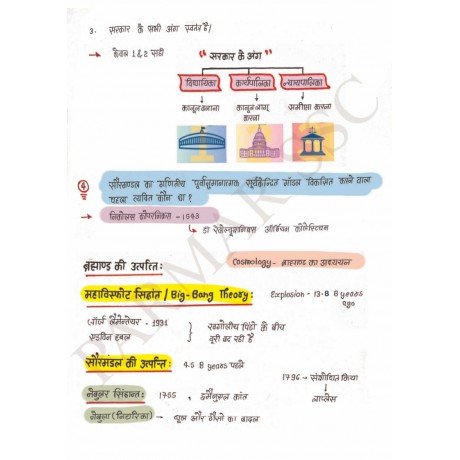 3. सरकार के सभी अंग स्वतंत्र हैं।
→ केवल 1 & 2 सही
"सरकार के अंग"
विधायिका कार्यपालिका न्यायपालिका
कानून बनाना कानून लागू करना समीक्षा करना
④ सौरमण्डल का गणितीय पूर्वानुमानात्मक सूर्यकेन्द्रित मॉडल विकसित करने वाला
पहला व्यक्ति कौन था ?
→ निकोलस कोपरनिकस - 1543
↳ डी रेवोल्यूशनिबस ऑर्बियम कोलेस्टियम
ब्रह्माण्ड की उत्पत्ति:
Cosmology - ब्रह्माण्ड का अध्ययन
महाविस्फोट सिद्धांत / Big-Bang Theory:
Explosion - 13.8 B years ago
जॉर्ज लैमेन्तेयर - 1931
एडविन हबल
खगोलीय पिंडो के बीच
दूरी बढ रही है
सौरमंडल की उत्पत्ति:
4.5 B years पहले
1796 - संशोधित किया
↳ लाप्लेस
नेबुलर सिद्धान्त: 1755, इमैनुएल कांत
नेबुला (निहारिका) → धूल और गैसो का बादल
PARMAR SSC